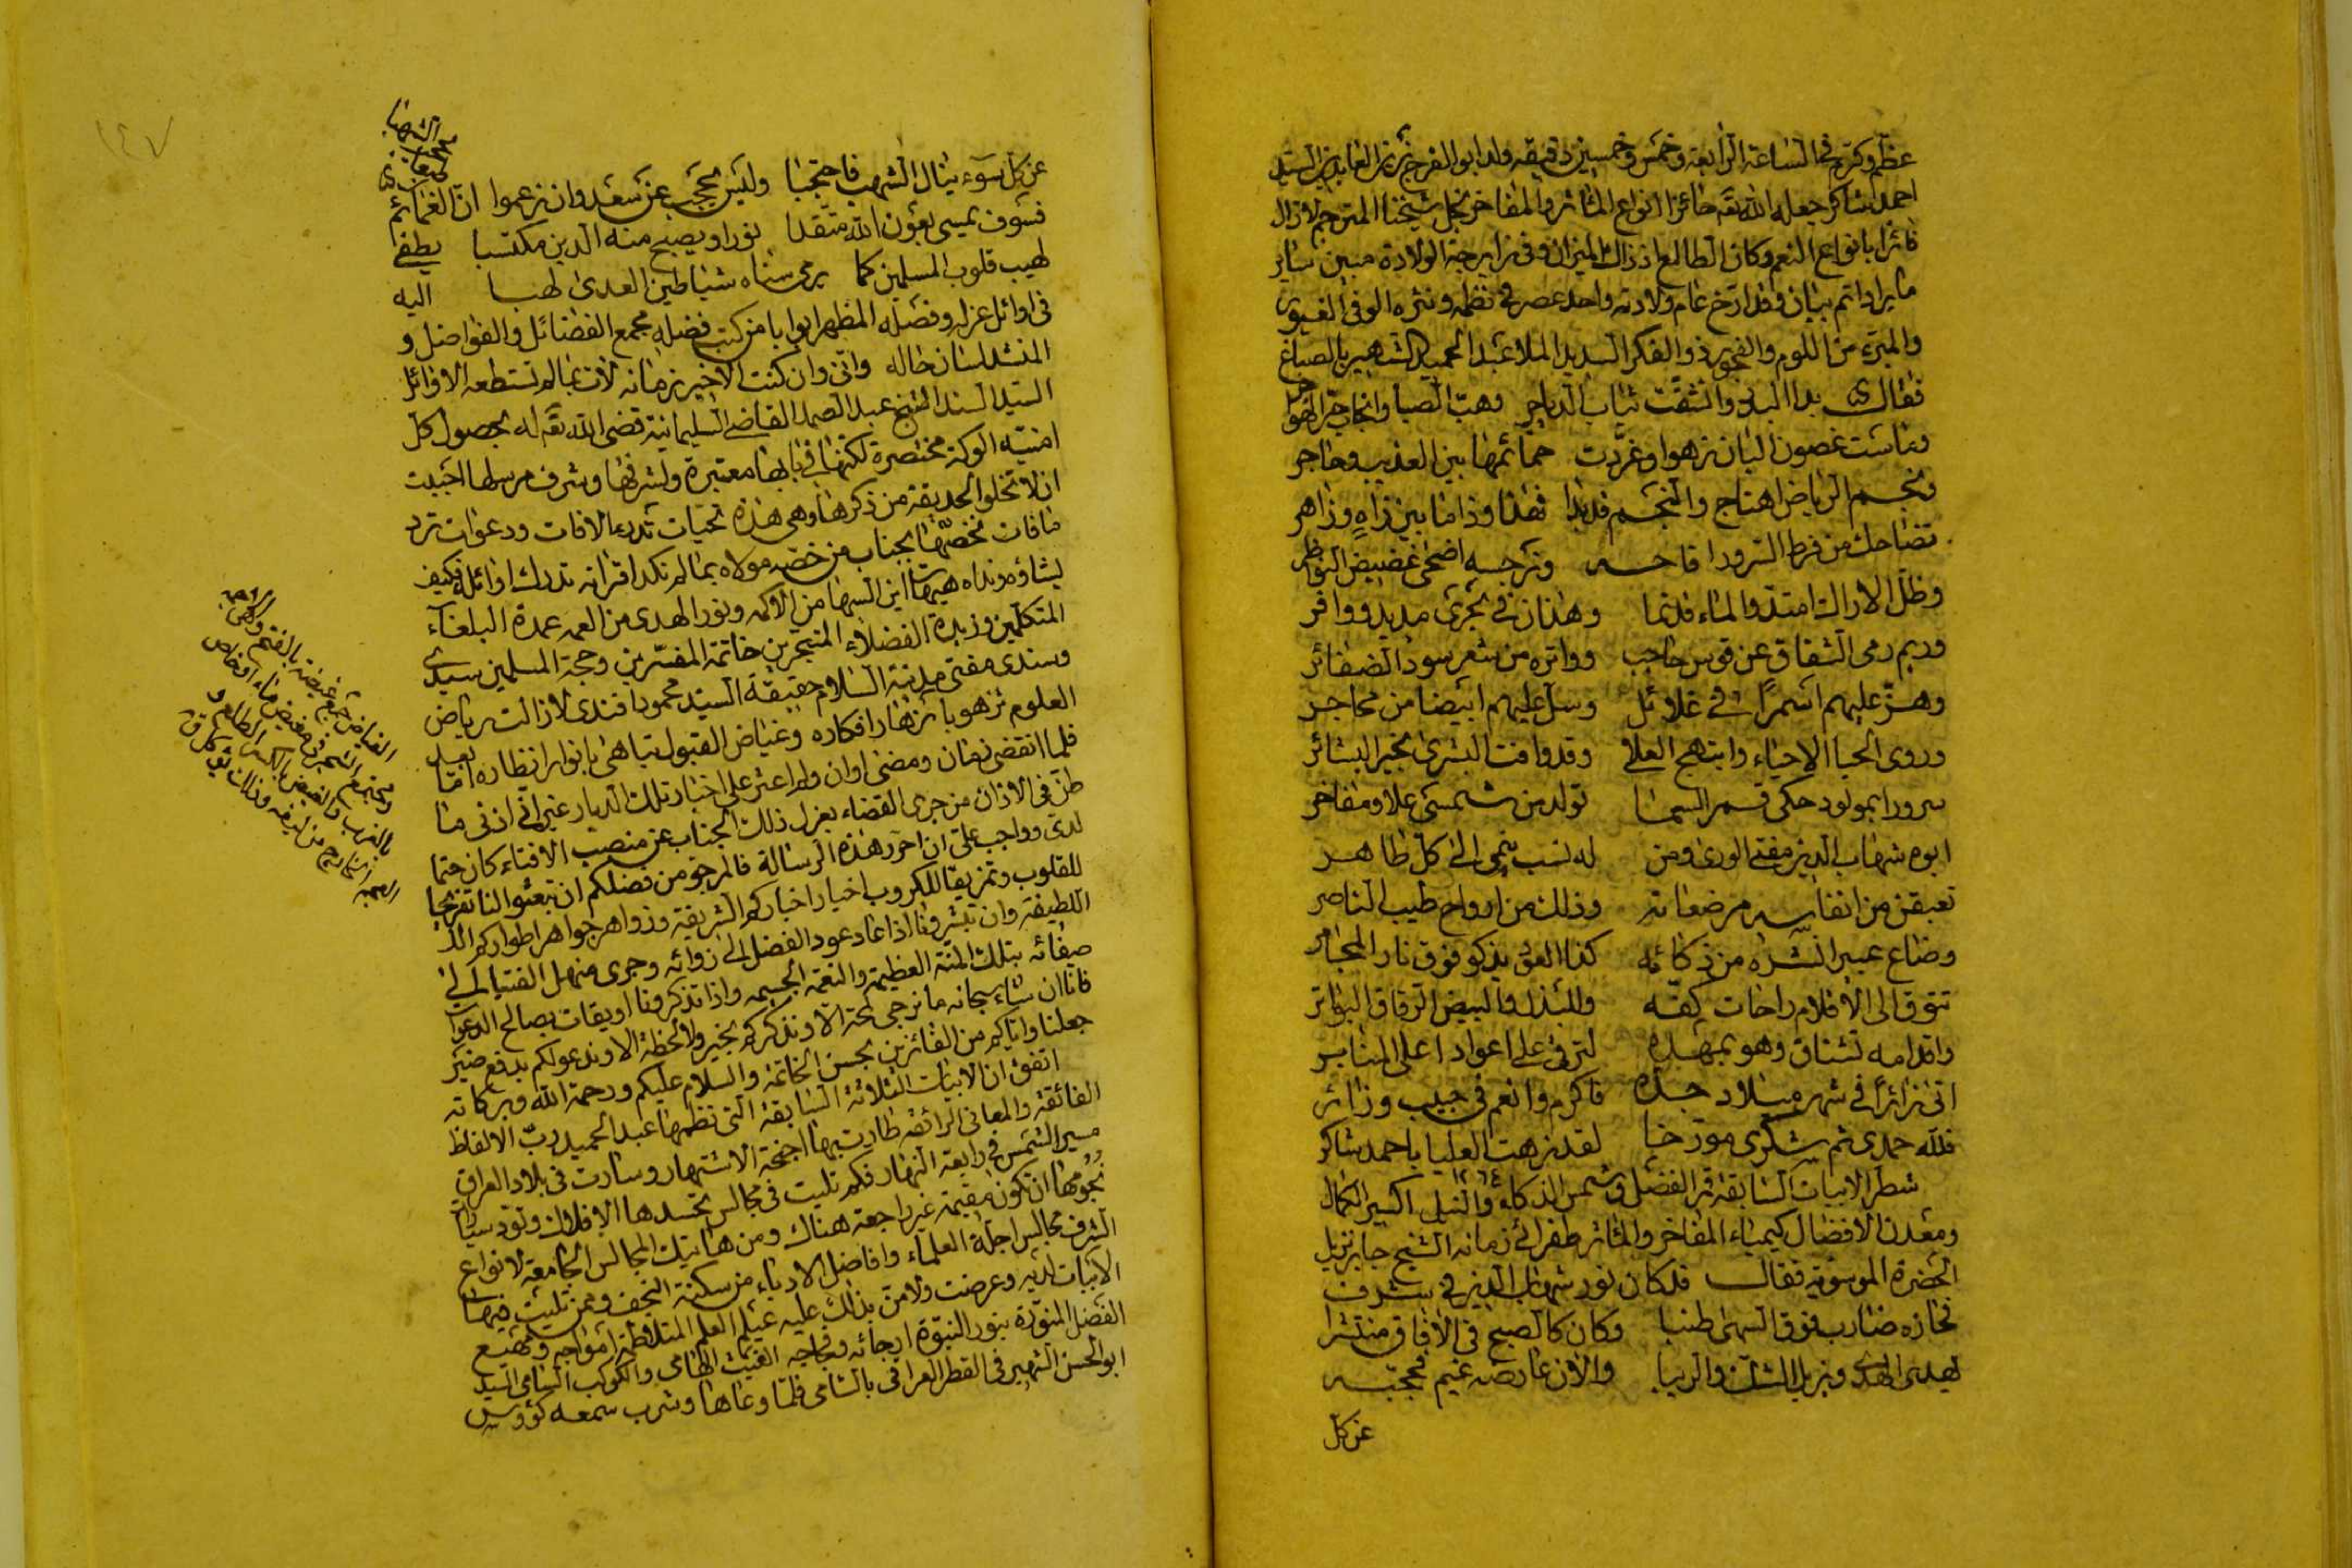 عظم وكرم في الساعة الرابعة وخمس وخمسين دقيقه ولد ابو الفرج زين العابدين السيد
احمد شاكر جعله الله تعه حائزا انواع المآثر والمفاخر نجل شيخنا المترجم لا زال
فائزا بانواع النعم وكان الطالع اذ ذاك الميزان وفي زايرجة الولادة مبين ساير
ما يراد اتم بيان وقد ارخ عام ولادته واحد عصره في نظمه ونثره الوفي الغيور
والمبرء من اللوم والفجور ذو الفكر السديد الملا عبد الحميد الشهير بالصباغ
فقال بدا البدر وانشقت ثياب الدياجر وهب الصبا وانجاب حر الهواجر
وماست غصون البان زهوا وغردت حمائمها بين العذيب وحاجر
ونجم الرياض اهتاج والنجم قد بدا فهذا وذا ما بين زاه وزاهر
تضاحك من فرط السرور اقاحه ونرجسه اضحى غضيض النواظر
وظل الاراك امتد والماء قد نما وهذان في بحري مديد ووافر
وريم رمى الشفاق عن قوس حاجب وواتره من شعر سود الضفائر
وهز عليهم اسمرا في غلائل وسل عليهم ابيضا من محاجر
وروى الحيا الاحياء وابتهج العلا وقد وافت البشرى بخير البشائر
سرورا بمولود حكى قمر السما تولد من شمسي علا ومفاخر
ابوه شهاب الدين مفتي الورى ومن له نسب ينمى الى كل طاهر
تعبقن من انفاسه مرضعاته وذلك من ارواح طيب الناصر
وضاع عبير النشر من ذكائه كذا العود يذكو فوق نار المجامر
تتوق الى الاقلام راحات كفه وللبذل والبيض الرقاق البواتر
واقدامه تشتاق وهو بمهده لترقى على اعواد اعلى المنابر
اتى زائرا في شهر ميلاد جده فاكرم وانعم في حبيب وزائر
فلله حمدي ثم شكري مورخا لقد زهت العليا باحمد شاكر
١٢٦٤
شطر الابيات السابقة قمر الفضل وشمس الذكاء والنبل اكسير الكمال
ومعدن الافضال كيمياء المفاخر والمآثر طغرائي زمانه الشيخ جابر نزيل
الحضرة الموسوية فقال قد كان نور شهاب الدين في شرف
نحازه ضارب فوق السهى طنبا وكان كالصبح في الآفاق منتشرا
يهدي الهدى ويزيل الشك والريبا والان عارضه غيم فحجبه
عن كل
١٤٧
عن كل سوء ينال الشهب فاحتجبا وليس يحجب عن سعد وان زعموا ان الغمائم
فسوف يمسي بعون الله متقدا نورا ويصبح منه الدين مكتسبا يطفي
لهيب قلوب المسلمين كما يرمي سناه شياطين العدى لهبا اليه
في اوائل عزله وفصله المظهر ابوابا من كتب فضله مجمع الفضائل والفواضل و
المنشد لسان حاله واني وان كنت الاخير زمانه لآت بما لم تستطعه الاوائل
السيد السند الشيخ عبد الصمد القاضي السليمانية قضى الله تعه له بحصول كل
امنية الوكة مختصرة لكنها في بابها معتبرة ولشرفها وشرف مرسلها احببت
ان لا تخلو الحديقة من ذكرها وهي هذه تحيات تدرء الآفات ودعوات ترد
ما فات نخصها بجناب من خصه مولاه بما لم تكد اقرانه تدرك اوائله فكيف
بشاؤه ونداه هيهات اين السها من الاكمه ونور الهدى من العمه عمدة البلغاء
المتكلمين وزبدة الفضلاء المتبحرين خاتمة المفسرين وحجة المسلمين سيدي
وسندي مفتي مدينة السلام حقيقة السيد محمود افندي لا زالت رياض
العلوم تزهو بازهار افكاره وغياض القبول تباهى بانوار انظاره اما بعد
فلما انقضى زمان ومضى اوان ولم اعثر على اخبار تلك الديار غير اني اذني ما
طن في الآذان من جرى القضاء بعزل ذلك الجناب عن منصب الافتاء كان حتما
لدي وواجب علي ان احرر هذه الرسالة فالمرجو من فضلكم ان تبعثوا لنا تفريجا
للقلوب وتمزيقا للكروب اخيار اخباركم الشريفة وزواهر جواهر اطواركم الـ
اللطيفة وان تبشرونا اذا عاد عود الفضل الى زوائه وجرى منهل الفتيا الى
صفائه بتلك المنة العظيمة والنعمة الجسيمه واذا تذكرونا اويقات بصالح الدعوات
فانا ان شاء سبحانه ما نزجي لمحة الا ونذكركم بخير ولا لحظة الا وندعو لكم بدفع ضير
جعلنا واياكم من الفائزين بحسن الخاتمة والسلام عليكم ورحمة الله وبركاته
اتفق ان الابيات الثلاثة السابقة التي نظمها عبد الحميد رب الالفاظ
الفائقة والمعاني الرائقة طارت بها اجنحة الاشتهار وسارت في بلاد العراق
مسير الشمس في رابعة النهار فكم تليت في مجالس تحسدها الافلاك وتود سيارات
نجومها ان تكون مقيمة غير راجعة هناك ومن هاتيك المجالس الجامعة لانواع
الشرف مجالس اجلة العلماء وافاضل الادباء من سكنة النجف وممن تليت فيها
الابيات لديه وعرضت ولا من بذلك عليه عيلم العلم المتلاطمة امواجه ومهيع
الفضل المنورة بنور النبوة ارجائه وفجاجه الغيث الهامي والكوكب السامي السيد
ابو الحسن الشهير في القطر العراقي بالشامي فلما وعاها وشرب سمعه كؤوس
الغياض جمع غيضة بالفتح وهي الاجمة
ومجتمع الشجر في مغيض ماء او خاص
بالغرب والغيض بالكسر الطلع و
العجم الخارج من ليفه وذلك يؤكل ق